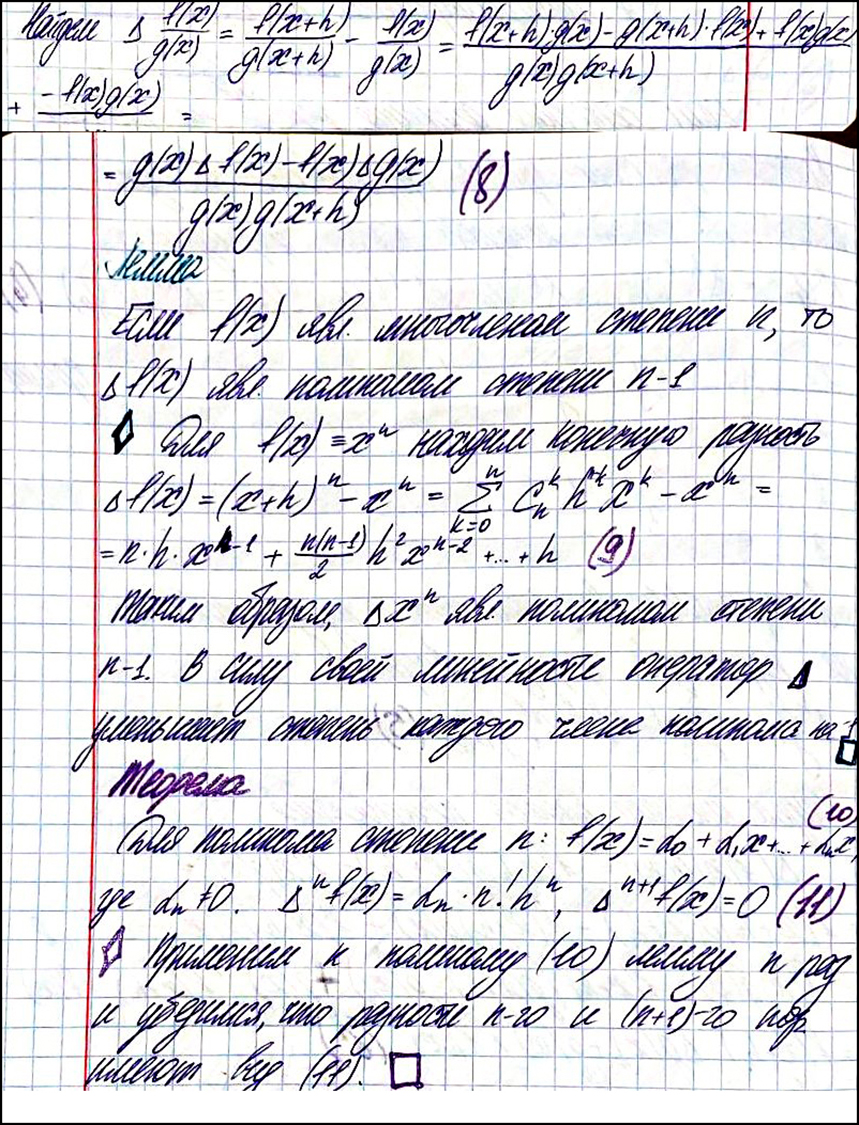 Найдем Δ f(x)/g(x) = f(x+h)/g(x+h) - f(x)/g(x) = (f(x+h)·g(x) - g(x+h)·f(x) + f(x)g(x))/(g(x)g(x+h))
+ (-f(x)g(x))/ =
= (g(x)Δf(x) - f(x)Δg(x))/(g(x)g(x+h)) (8)
Лемма
Если f(x) явл. многочленом степени n, то
Δf(x) явл. полиномом степени n-1
◊ Для f(x) = xⁿ находим конечную разность
Δf(x) = (x+h)ⁿ - xⁿ = Σ_{k=0}^{n} C_n^k h^{n-k} x^k - xⁿ =
= n·h·x^{n-1} + n(n-1)/2 h² x^{n-2} +...+ h (9)
Таким образом, Δxⁿ явл. полиномом степени
n-1. В силу своей линейности оператор Δ
уменьшает степень каждого члена полинома на 1 □
Теорема
(10)
Для полинома степени n: f(x) = α₀ + α₁x +...+ αₙx
где αₙ ≠ 0. Δⁿf(x) = αₙ·n!hⁿ, Δⁿ⁺¹f(x) = 0 (11)
◊ Применим к полиному (10) лемму n раз
и убедимся, что разности n-го и (n+1)-го пор
имеют вид (11). □